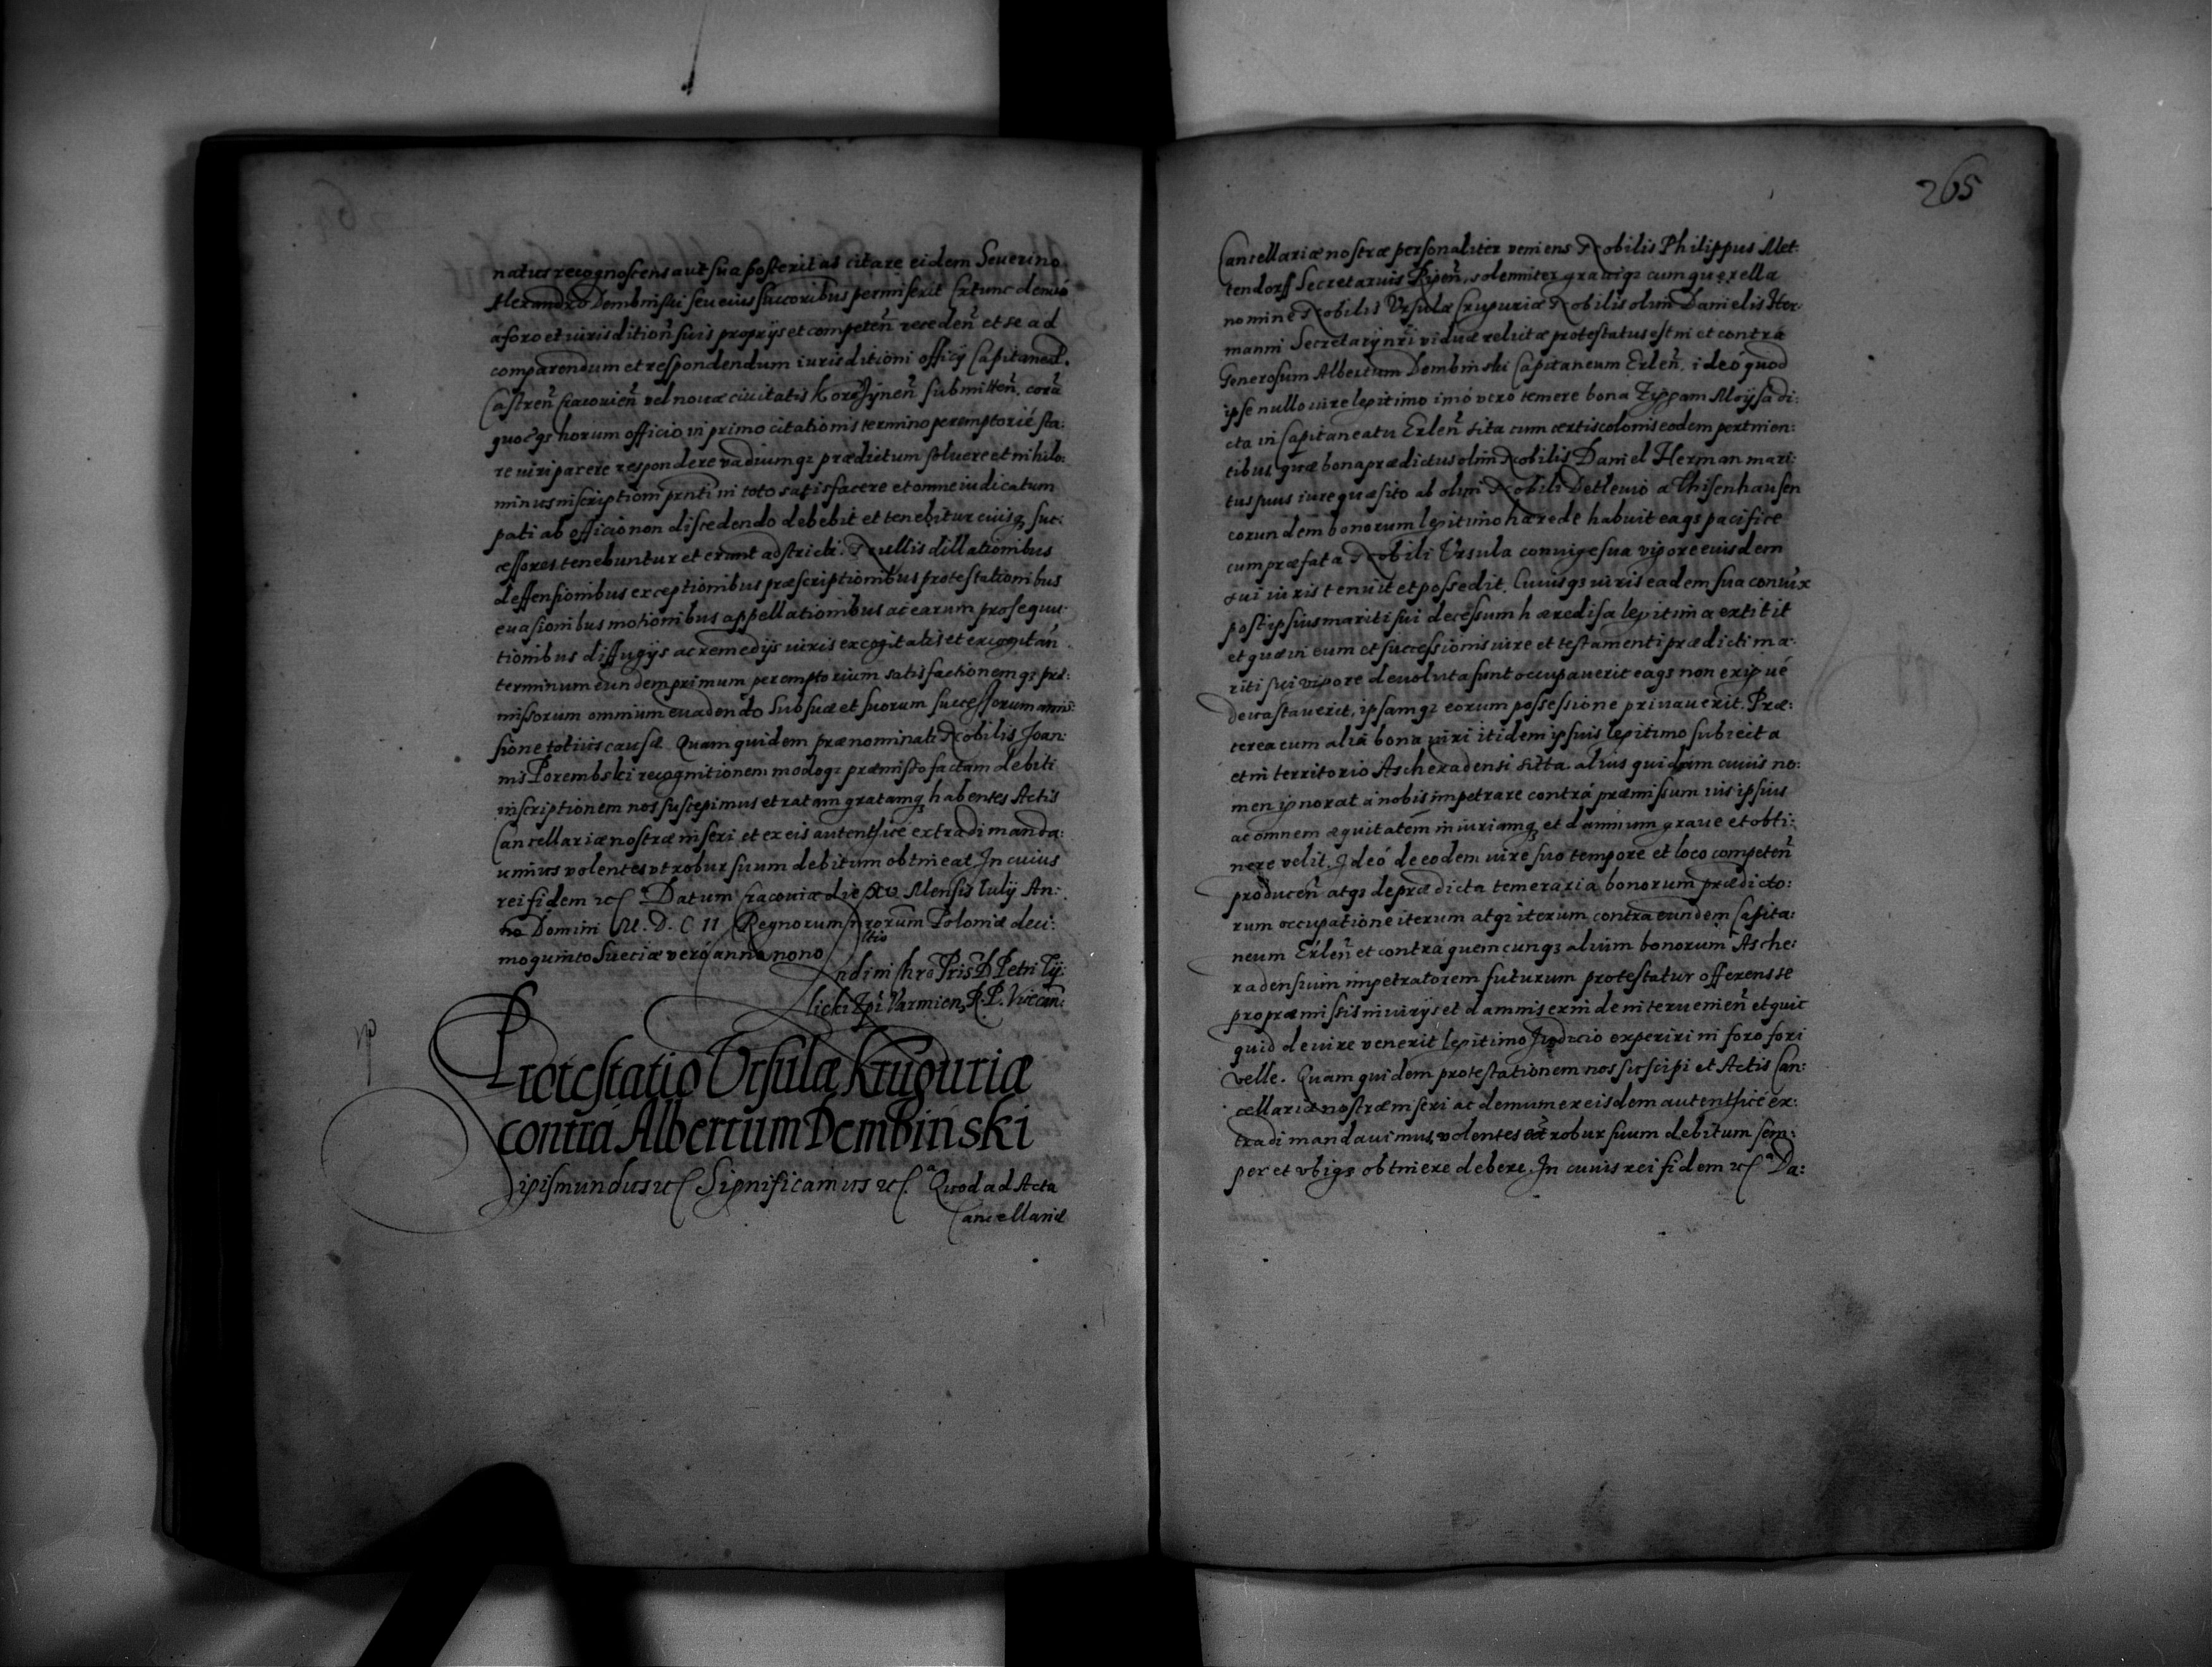 natus recognoscens aut sua posteritas citare eidem Seuerino
Alexandro Dembinski seu eius succoribus permiserit Extunc denuó
á foro et iurisdition̄ suis proprijs et competen̄ receden̄ et se ad
comparendum et respondendum iurisditioni officij Capitaneal.
Castren̄ Cracouien̄ vel nouæ ciuitatis Korczÿnen̄ submitten̄. corā
quocq̨ horum officio in primo citationis termino peremptorié sta:
re iuri parere respondere vadiumq̨ prædictum soluere et nihilo:
minus inscriptioni pr̄nti in toto satisfacere et omne iudicatum
pati ab officio non discedendo debebit et tenebitur eiusq̨ suc:
cessores tenebuntur et erunt adstricti. Nullis dillationibus
deffensionibus exceptionibus præscriptionibus protestationibus
euasionibus motionibus appellationibus ac earum prosequu:
tionibus diffugijs ac remedijs iuris excogitatis et excogitan̄
terminum eundem primum peremptorium satisfactionemq̨ præ:
missorum omnium euadendo sub suæ et suorum successorum amis:
sione totius causæ. Quam quidem prænominati Nobilis Joan:
nis Porembski recognitionem modoq̨ præmisso factam debiti
inscriptionem nos suscepimus et ratam gratamq̨ habentes Actis
Cancellariæ nostræ inseri et ex eis autenthice extradi manda:
uimus volentes vt robur suum debitum obtineat. In cuius
rei fidem etc̄. Datum Cracouiæ die XV Mensis Iulij An:
no Domini M. D. C II Regnorum nrorum Poloniæ deci:
moquinto Sueciæ veró anno nono
Ltio
Rndi in Chro Pris D Petri Tÿ:
licki Epi Varmien. R. P. Vicecan:
Protestatio Vrsulæ Kruguriæ
contrá Albertum Dembinski
Sigismundus etc̄ Significamus etc̄. Quod ad Acta
Cancellariæ
265
Cancellariæ nostræ personaliter veniens Nobilis Philippus Met:
tendorff Secretarius Rigen̄, solemniter grauiq̨ cum querella
nomine Nobilis Vrsulæ Cruguriæ Nobilis olim Danielis Her:
manni Secretarÿ nr̄i viduæ relictæ protestatus est in et contrá
Generosum Albertum Dembinski Capitaneum Erlen̄. ideó quod
ipse nullo iure legitimo imó vero temere bona Zygam Moÿsa di:
cta in Capitaneatu Erlen̄ sita cum certis colonis eodem pertinen:
tibus, quæ bona prædictus olim Nobilis Daniel Herman mari:
tus suus iure quæsito ab olim Nobili Detleuio a Thisenhausen
eorundem bonorum legitimo hærede habuit eaq̨ pacifice
cum præfata Nobili Vrsula coniuge sua vigore eiusdem
sui iuris tenuit et possedit. Cuiusq̨ iuris eadem sua coniūx
post ipsius mariti sui decessum hæredissa legitima extitit
et quæ in eum et successionis iure et testamenti prædicti ma:
riti sui vigore deuoluta sunt occupauerit eaq̨ non exigué
deuastauerit, ipsamq̨ eorum possessione priuauerit. Præ:
terea cum alia bona iuri itidem ipsius legitimo subiecta
et in territorio Ascheradensi sitta. alius quidam cuius no:
men ignorat á nobis impetrare contrá præmissum ius ipsius
ac omnem æquitatem in iuriamq̨ et damnum graue et obti:
nere velit. Ideó de eodem iure suo tempore et loco competen̄
producen̄ atq̨ de prædicta temeraria bonorum prædicto:
rum occupatione iterum atq̨ iterum contra eundem Capita:
neum Erlen̄ et contrá quemcunq̨ alium bonorum Asche:
radensium impetratorem futurum protestatur offerens se
pro præmissis iniurijs et damnis exinde interuenien̄ et quic
quid de iure venerit legitimo Judicio experiri in foro fori
velle. Quam quidem protestationem nos suscipi et Actis Can:
cellariæ nostræ inseri ac demum ex eisdem autenthicé ex:
tradi mandauimus, volentes robur suum debitum sem:
per et vbiq̨ obtinere debere. In cuius rei fidem etc̄. Da: